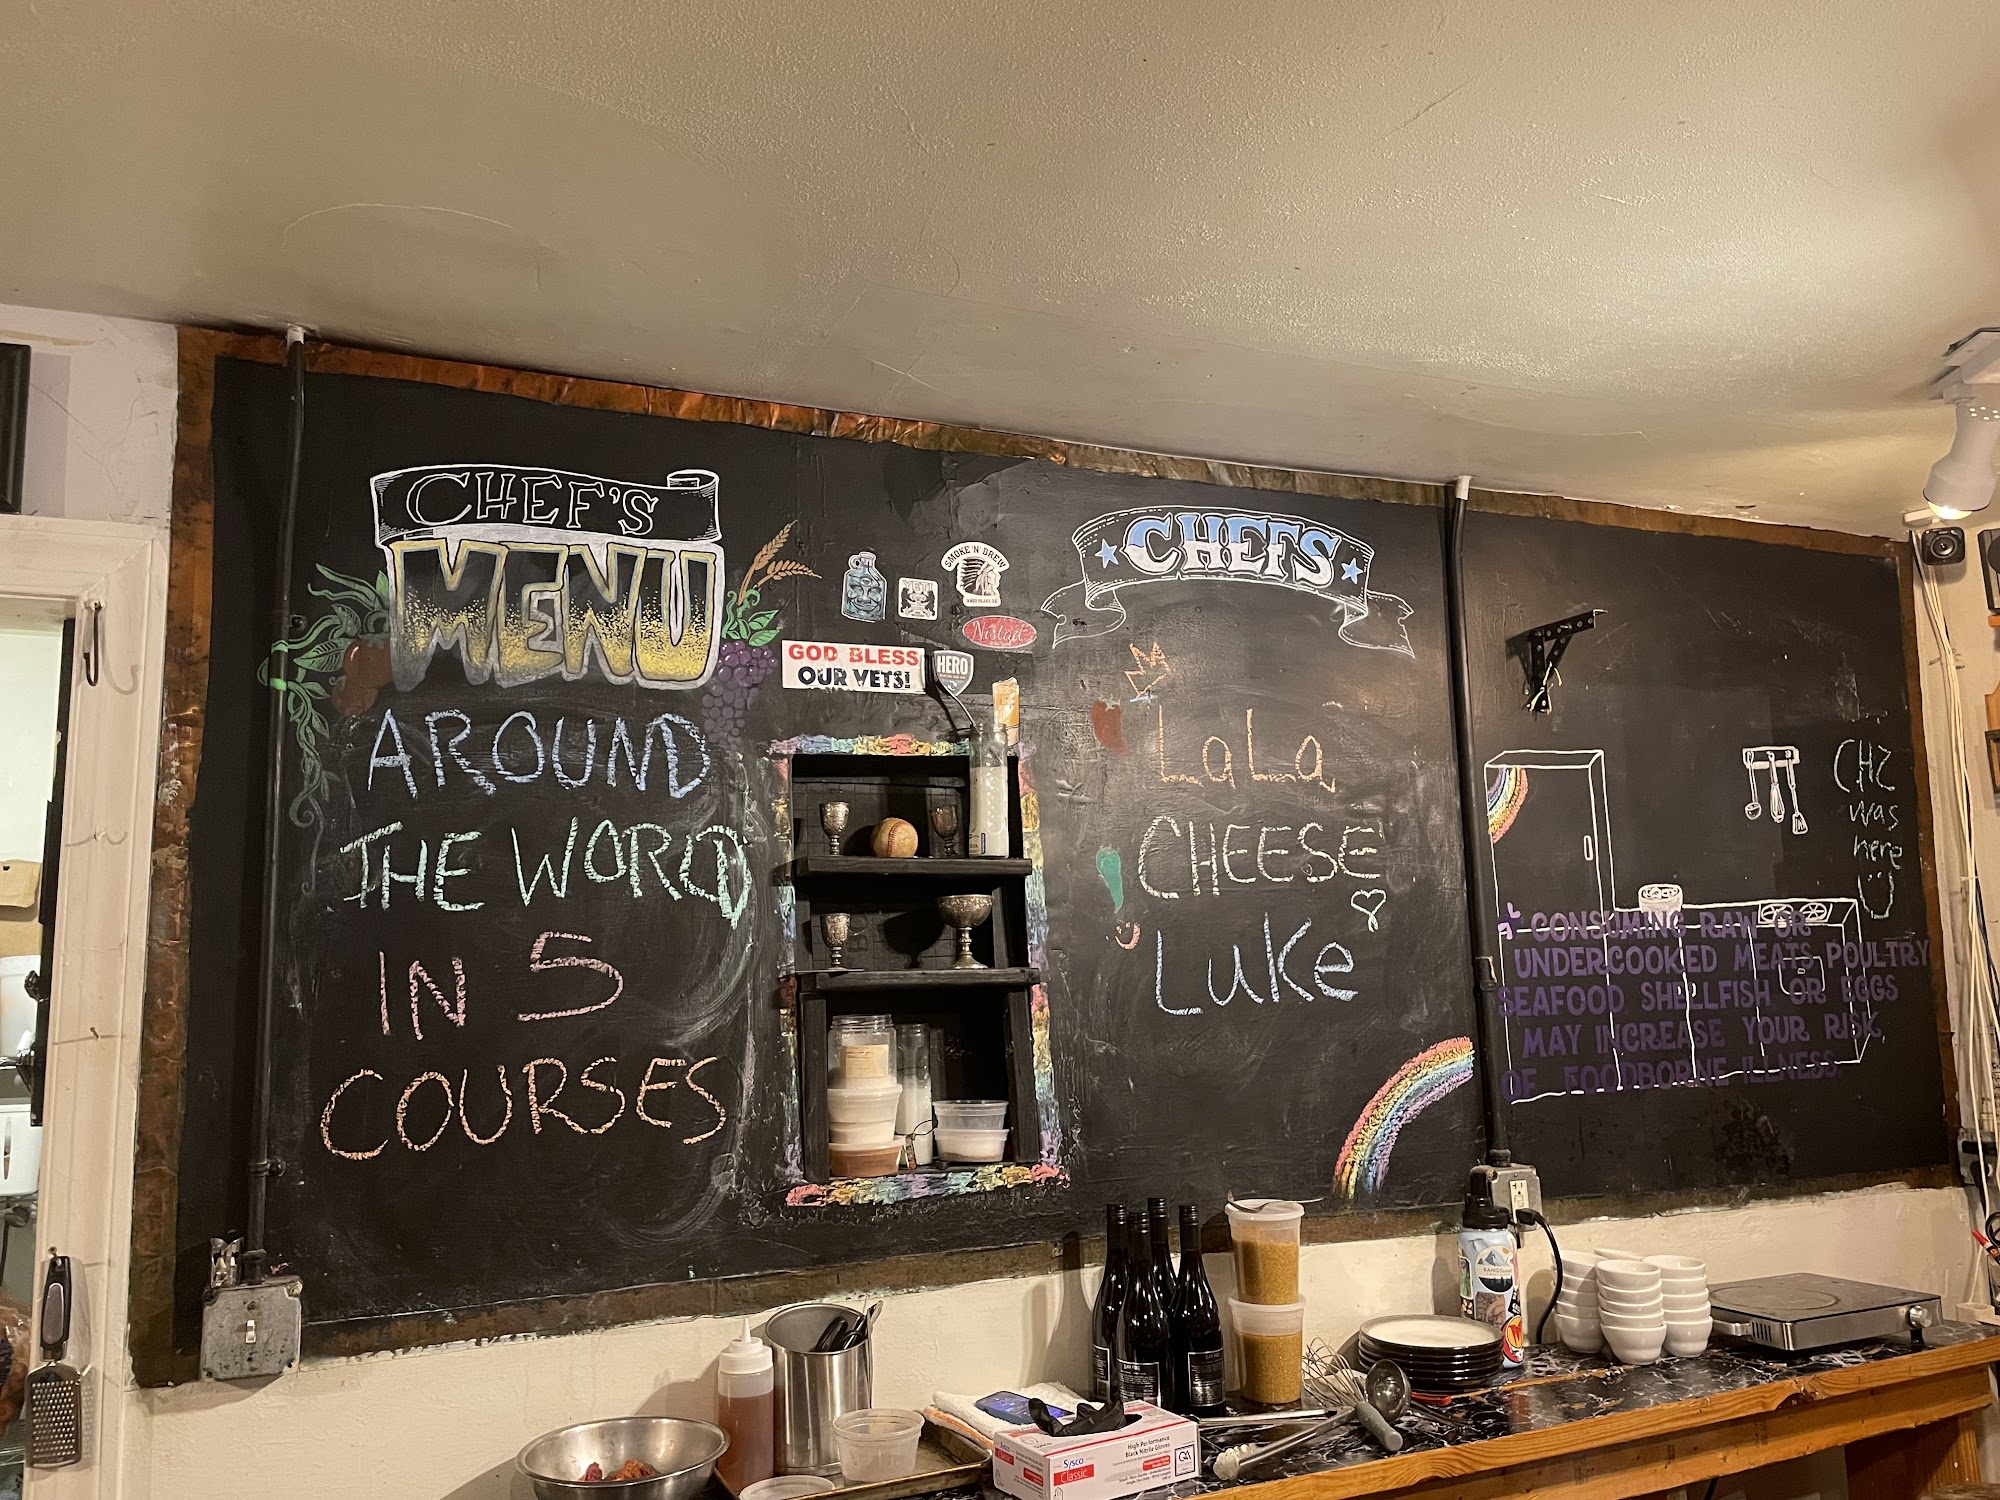 CHEF'S
MENU
AROUND
THE WORLD
IN 5
COURSES
YETI
SMOKE 'N' BREW
GOD BLESS
OUR VETS!
HERO
CHEFS
LaLa
CHEESE
Luke
CHZ
was
here
* CONSUMING RAW OR
UNDERCOOKED MEATS POULTRY
SEAFOOD SHELLFISH OR EGGS
MAY INCREASE YOUR RISK
OF FOODBORNE ILLNESS.
Sysco
Classic
High Performance
Black Nitrile Gloves